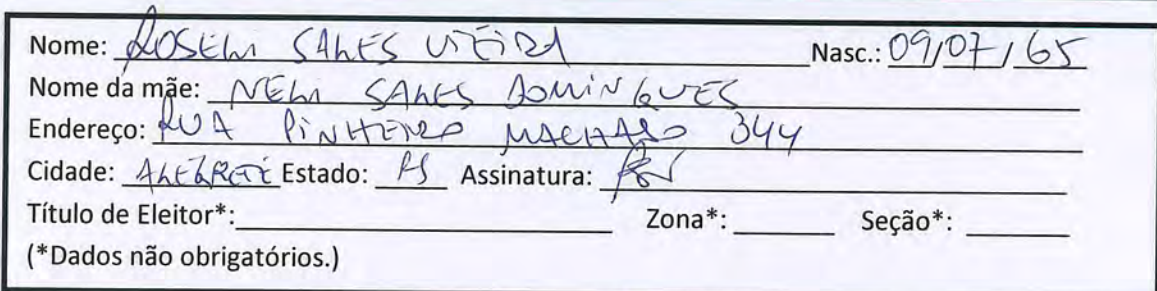 Nome: ROSELI SALES VIEIRA Nasc.: 09/07/65
Nome da mãe: NELI SALES DOMINGUES
Endereço: RUA PINHEIRO MACHADO 344
Cidade: ALEGRETE Estado: RS Assinatura:
Título de Eleitor*: Zona*: Seção*:
(*Dados não obrigatórios.)